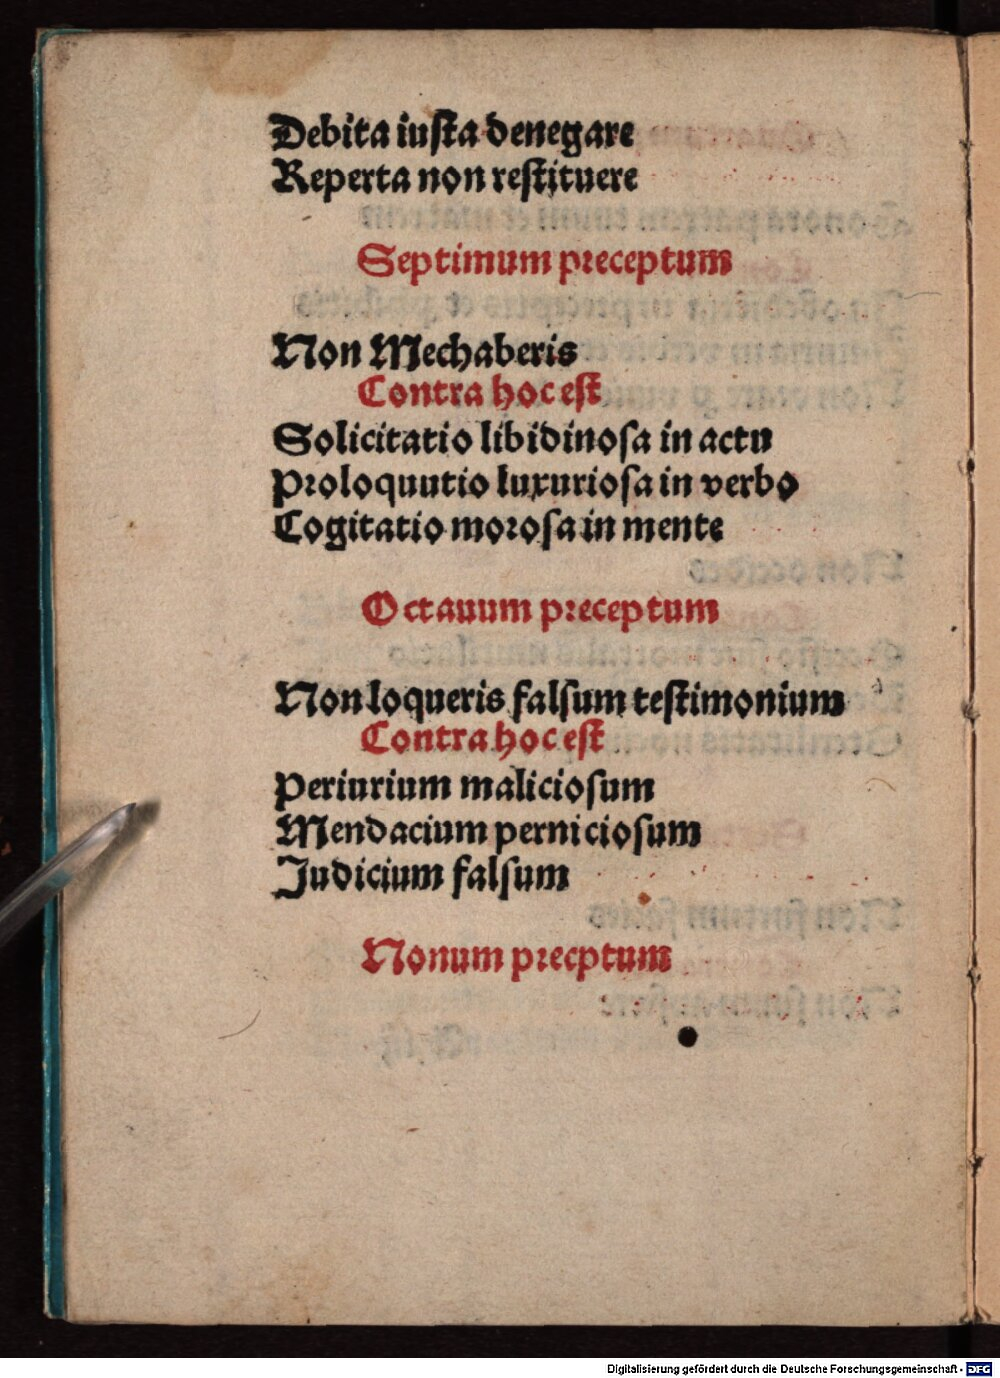 Debita iusta denegare
Reperta non restituere
Septimum preceptum
Non Mechaberis
Contra hoc est
Solicitatio libidinosa in actu
Proloquutio luxuriosa in verbo
Cogitatio morosa in mente
Octauum preceptum
Non loqueris falsum testimonium
Contra hoc est
Periurium maliciosum
Mendacium perniciosum
Judicium falsum
Nonum precptum
Digitalisierung gefördert durch die Deutsche Forschungsgemeinschaft - DFG